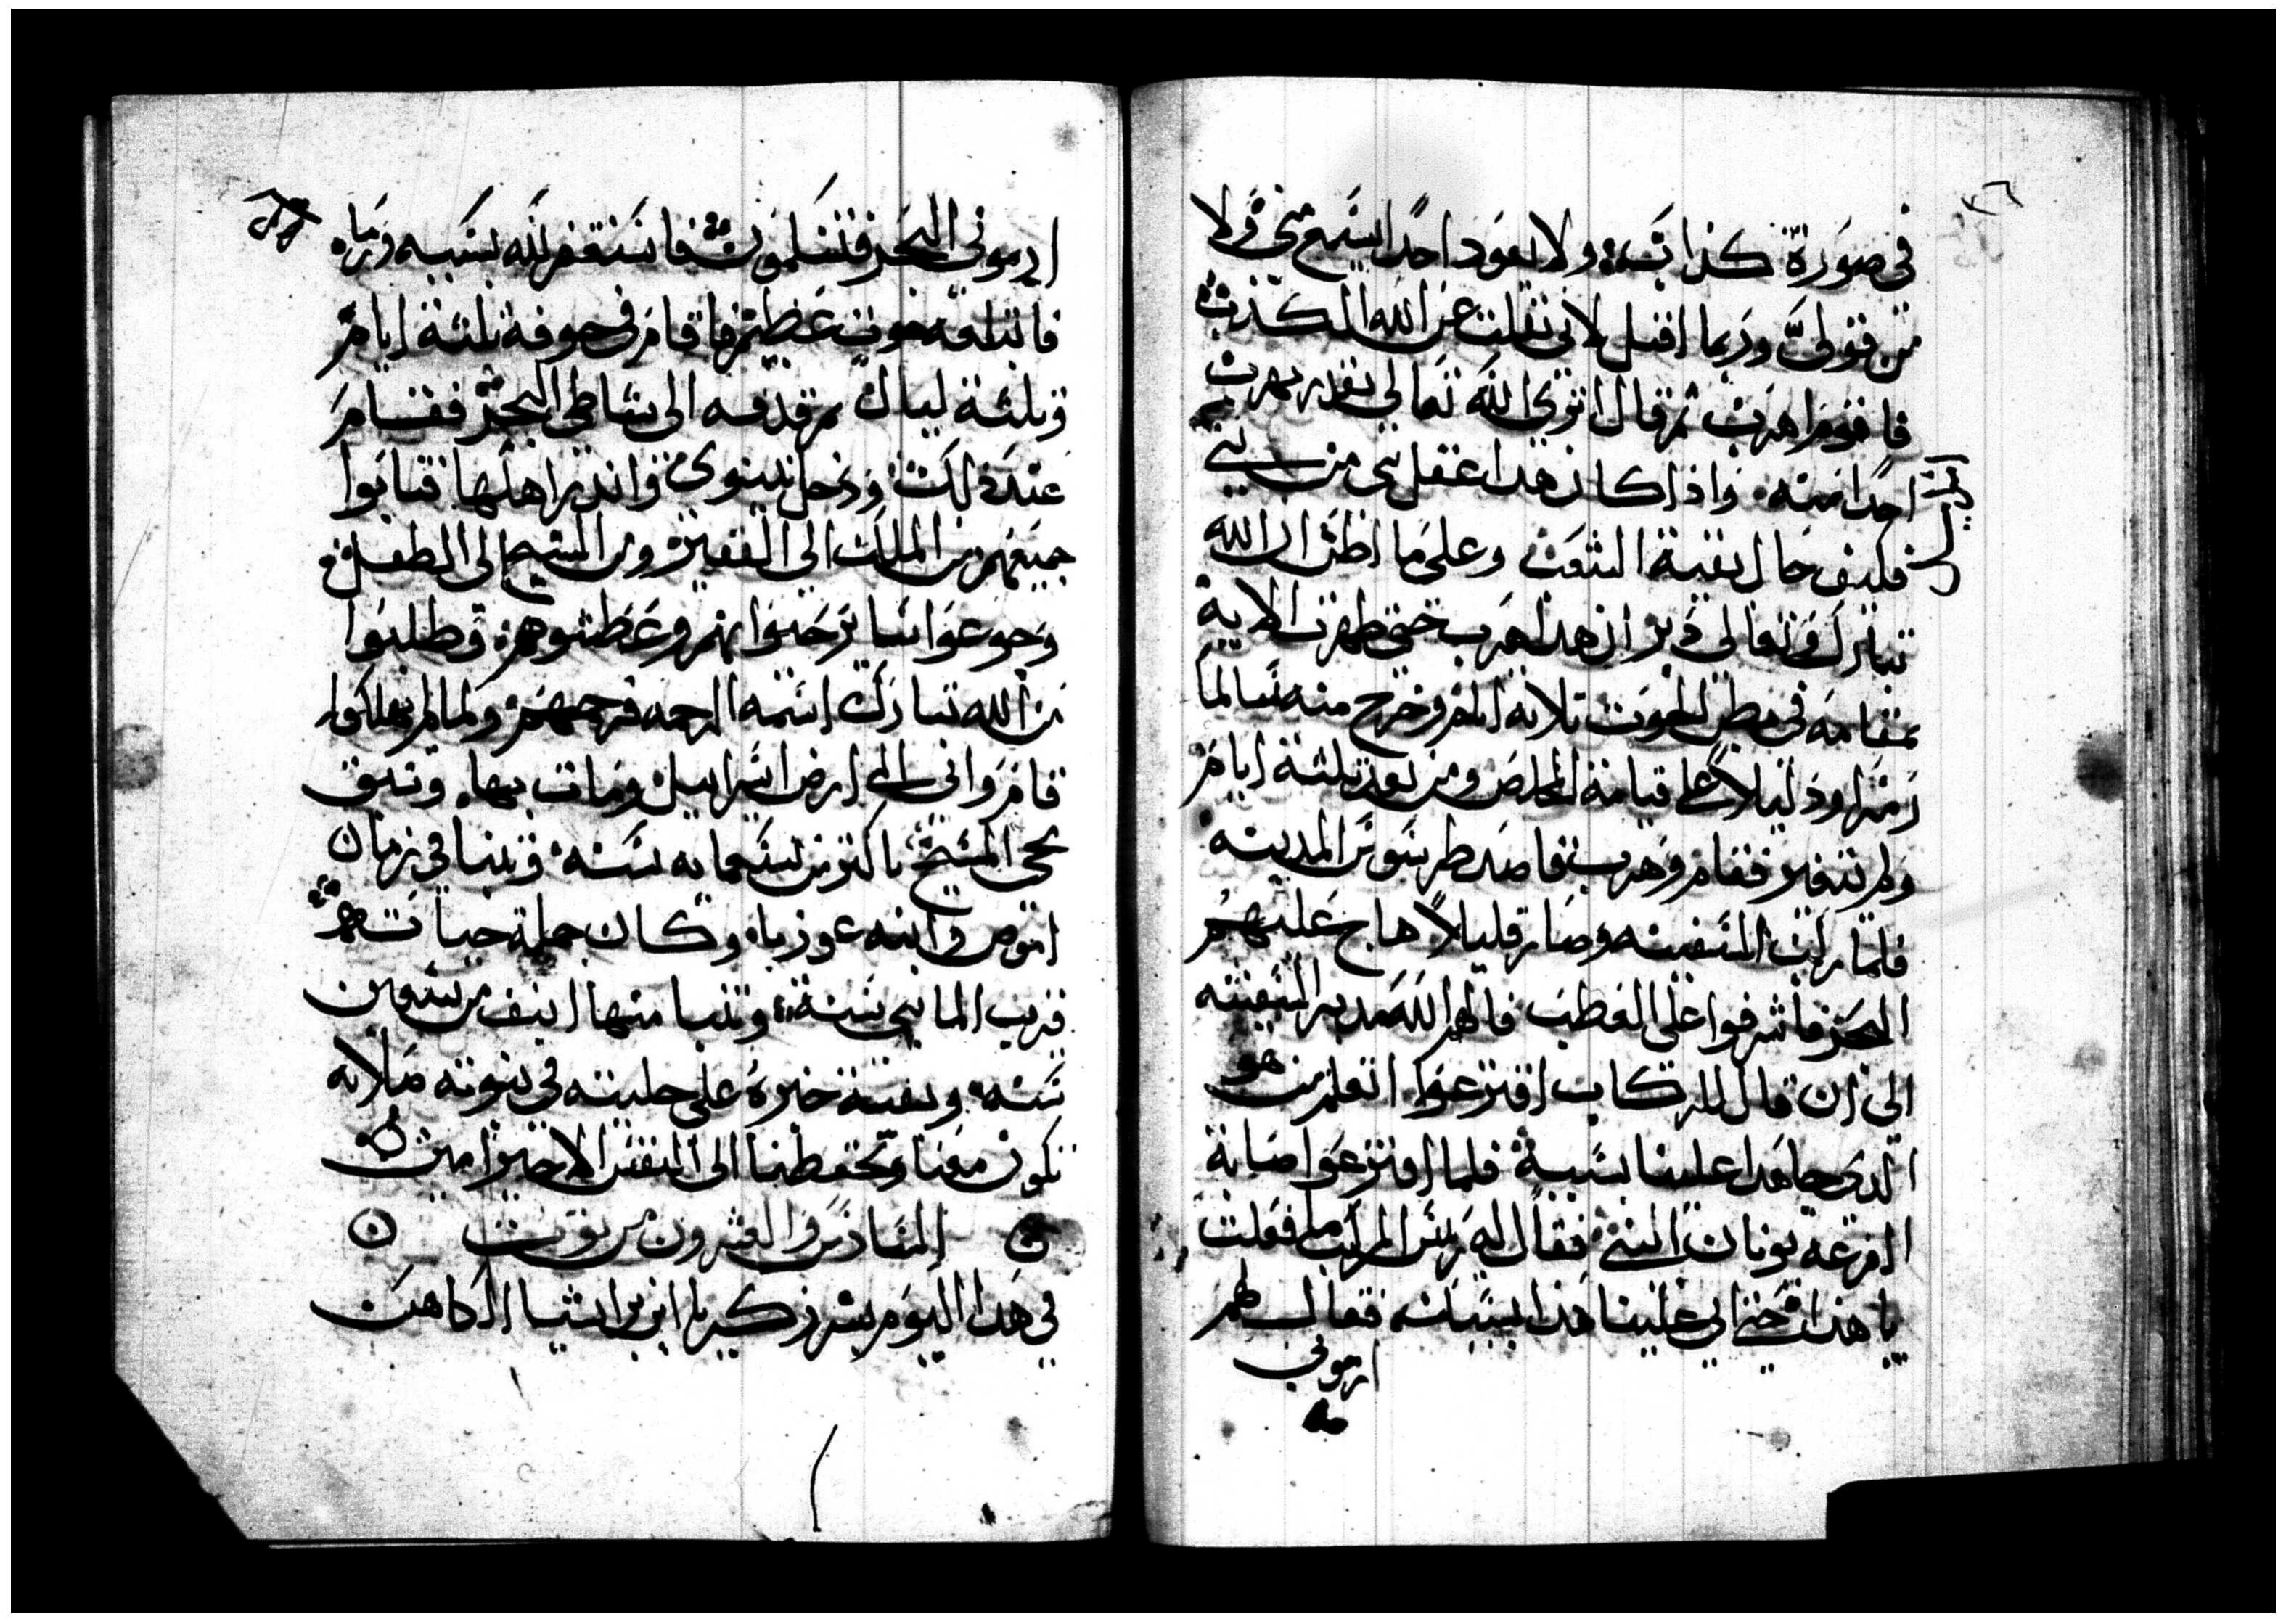 ٣٦
في صورة كذاب ولا يعود احدا يسمع مني ولا
من قولي وربما اقتل لاني نقلت عن الله الكذب
فاقوم اهرب ثم قال اتري الله تعالي يقدر يهرب
احدا منه واذا كان هدا عقل نبي من بني
فكيف حال بقية الشعب وعلي ما اظن ان الله
تبارك وتعالي دبر ان هدا هرب حتي ظهرت الاية
بمقامه في بطن الحوت تلاته ايام وخرج منه سالما
رمزا ودليلا علي قيامة المخلص ومن بعد ثلثة ايام
ولم يتغير فقام وهرب قاصد طرسوس المدينه
فلما ركب السفينه وصار قليلا هاج عليهم
البحر فاشرفوا علي العطب فالهم الله مدبر السفينه
الي ان قال للركاب اقترعوا لنعلم من هو
الدي جا هدا علينا بسببه فلما اقترعوا اصابة
القرعه يونان النبي فقال له ريس المركب ما فعلت
يا هذا حتي اتي علينا هذا بسببك فقال لهم
ارموني
ارموني البحر فتسلمون فاستغفر الله بسببه ورماه
فابتلعه حوت عظيم فاقام في جوفه ثلثة ايام
وثلثة ليال ثم قدفه الي شاطي البحر فقام
عند ذلك ودخل نينوي واندر اهلها فتابوا
جميعهم من الملك الي الفقير ومن الشيخ الي الطفل
وجوعوا ساير حيوانهم وعطشوهم وطلبوا
من الله تبارك اسمه الرحمه فرحمهم ولما لم يهلكوا
قام واتي الي ارض اسراييل ومات بها وسبق
مجي المسيح باكتر من تسعمايه سنه وتنبا في زمان
اموص وابنه عوزيا وكان جملة حياته
قريب الماية سنة وتنبا منها انيف من سبعين
سنه وبقية خبره علي جليته في نبوته صلاته
تكون معنا وتحفظنا الي النفس الاخير امين
السادس والعشرون من توت
في هدا اليوم بشر زكريا ابن براشيا الكاهن